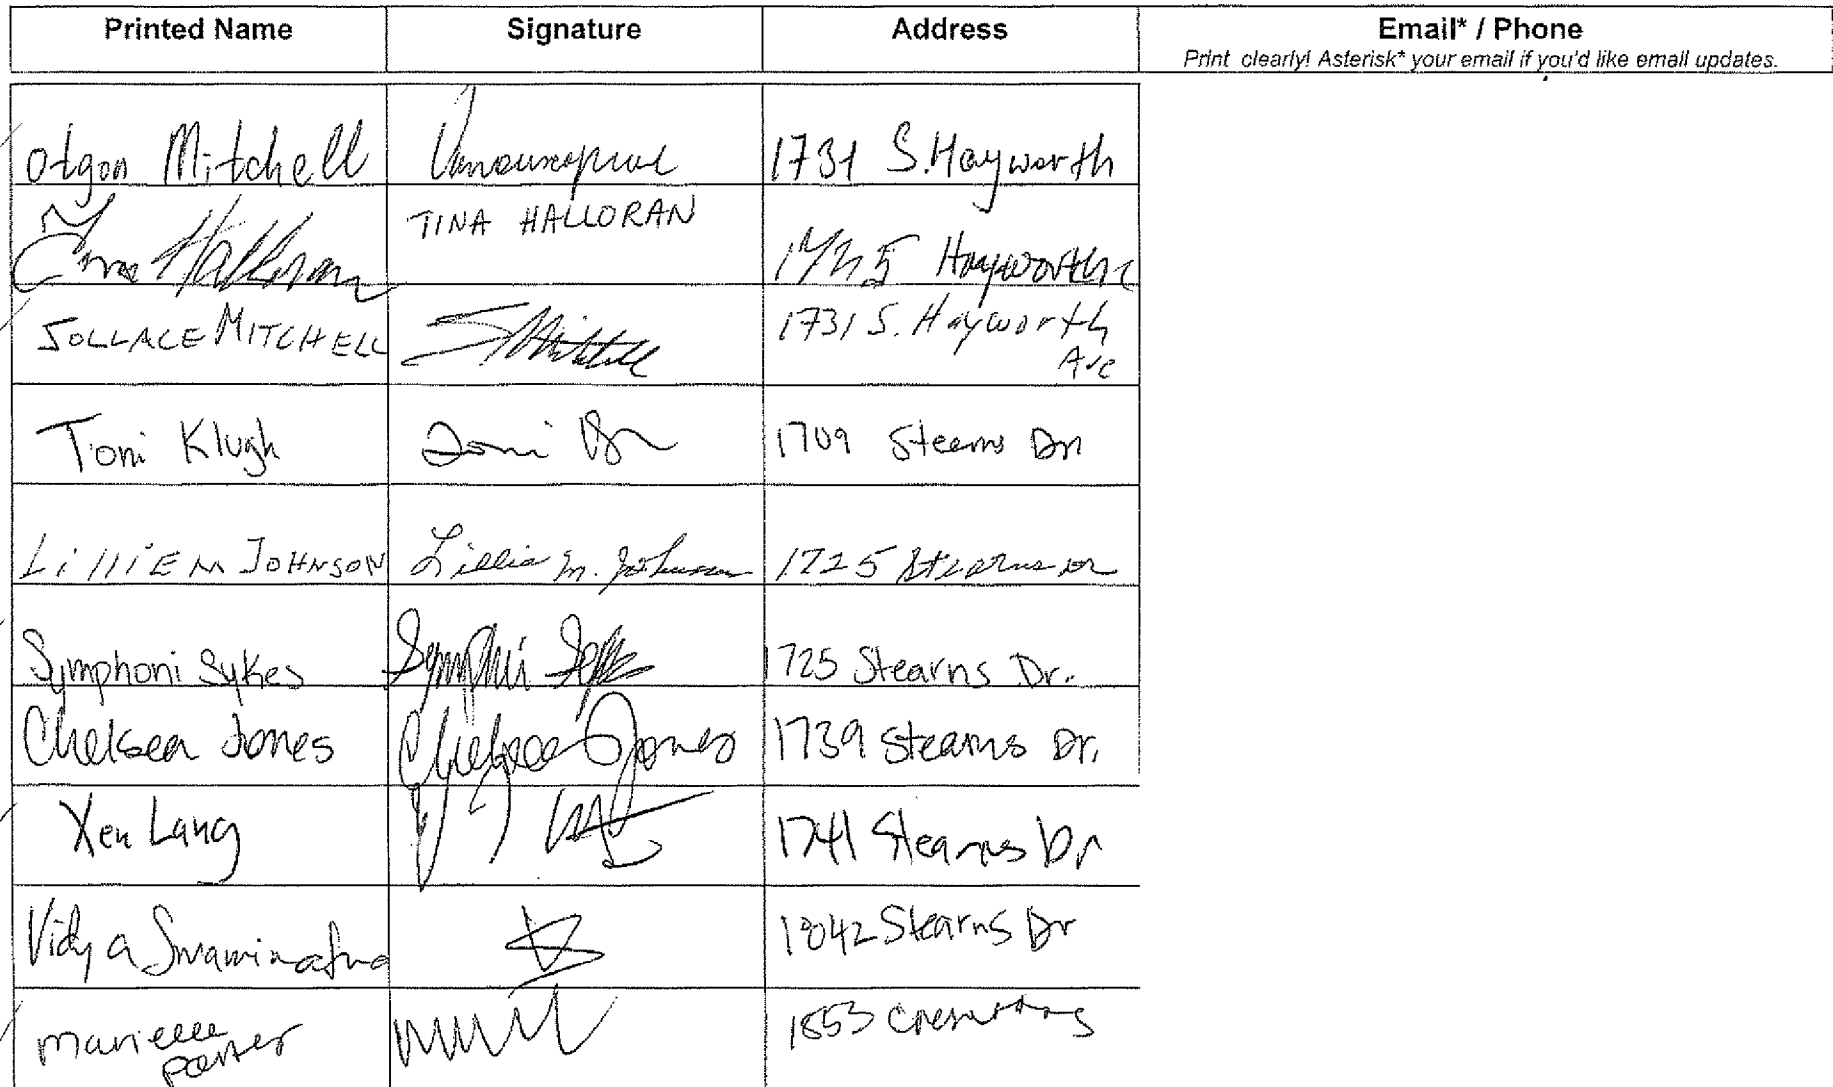 Printed Name Signature Address Email* / Phone
Print clearly! Asterisk* your email if you'd like email updates.
Otgon Mitchell 1731 S. Hayworth
Tina Halloran TINA HALLORAN Hayworth
SOLLACE MITCHELL SMitchell 1731 S. Hayworth
Ave
Toni Klugh Toni 1709 Stearns Dr
LilliE M JOHNSON Lillie M. Johnson 1725 Stearns Dr
Symphoni Sykes Symphoni Sykes 1725 Stearns Dr.
Chelsea Jones Chelsea Jones 1739 Stearns Dr.
Xen Lang 1741 Stearns Dr
Vidya 1842 Stearns Dr
Marielle 1853